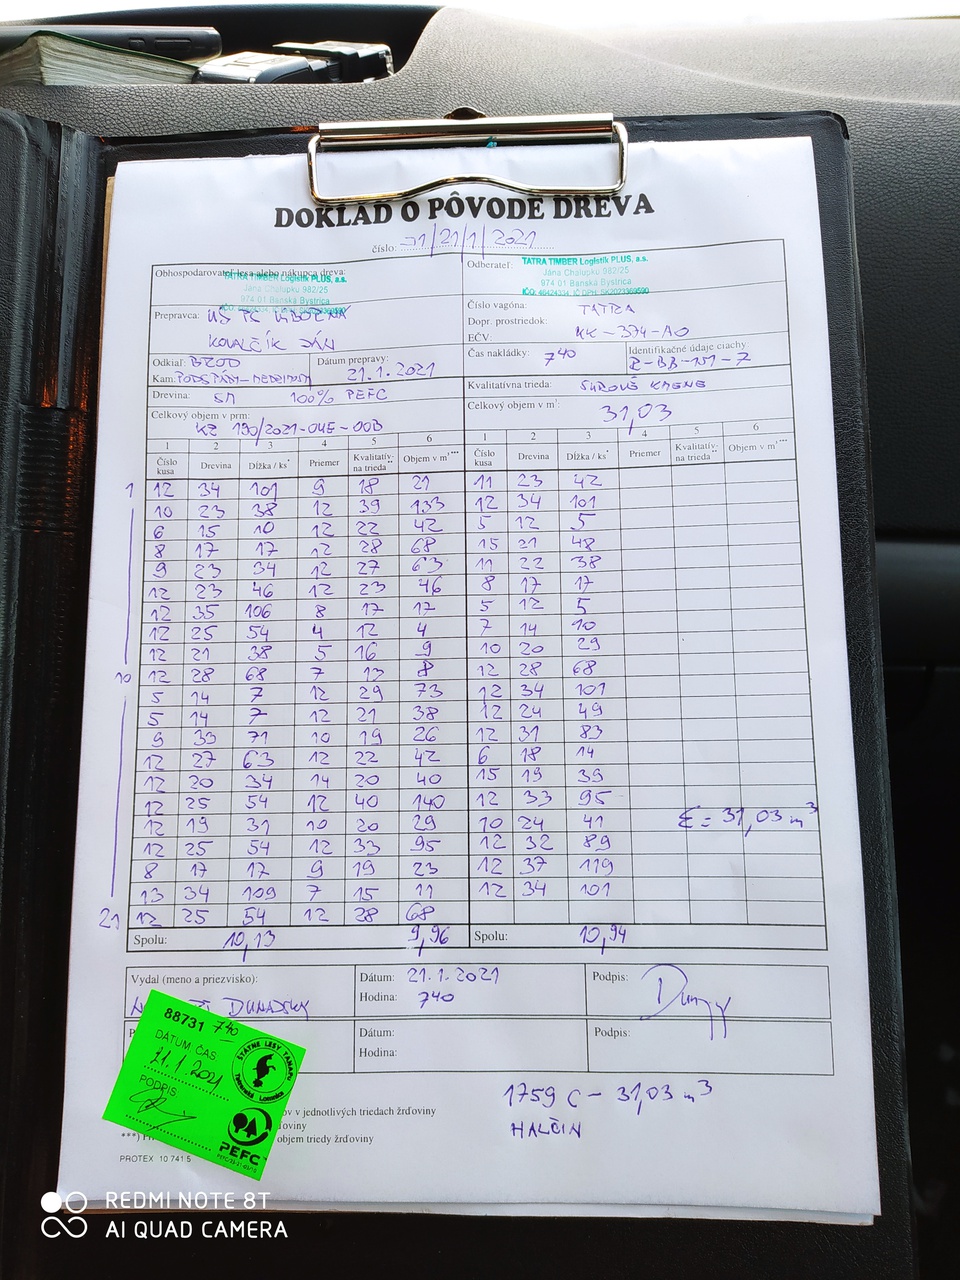 DOKLAD O PÔVODE DREVA
číslo: 01/21/1/2021
Obhospodarovateľ lesa alebo nákupca dreva:
TATRA TIMBER Logistik PLUS, a.s.
Jána Chalupku 982/25
974 01 Banská Bystrica
Prepravca:
KOVALČÍK JÁN
Odberateľ: TATRA TIMBER Logistik PLUS, a.s.
Jána Chalupku 982/25
974 01 Banská Bystrica
IČO: 46424334, IČ DPH: SK2023369590
Číslo vagóna: TATRA
Dopr. prostriedok:
EČV: KK-394-AO
Odkiaľ: BROD
Dátum prepravy: 21.1.2021
Kam: PODSPÁDY-MEDZIHOLIE
Čas nakládky: 7 40
Identifikačné údaje ciachy
R-BB-151-7
Drevina: SM 100% PEFC
Kvalitatívna trieda: SUROVÉ KMENE
Celkový objem v prm:
KZ 190/2021-04E-00B
Celkový objem v m³: 31,03
1 2 3 4 5 6 1 2 3 4 5 6
Číslo kusa Drevina Dĺžka / ks* Priemer Kvalitatív-na trieda** Objem v m³*** Číslo kusa Drevina Dĺžka / ks* Priemer Kvalitatív-na trieda** Objem v m³***
1 12 34 101 9 18 21 11 23 42
10 23 38 12 39 133 12 34 101
6 15 10 12 22 42 5 12 5
8 17 17 12 28 68 15 21 48
9 23 34 12 27 63 11 22 38
12 23 46 12 23 46 8 17 17
12 35 106 8 17 17 5 12 5
12 25 54 4 12 4 7 14 10
12 21 38 5 16 9 10 20 29
10 12 28 68 7 13 8 12 28 68
5 14 7 12 29 73 12 34 101
5 14 7 12 21 38 12 24 49
9 33 71 10 19 26 12 31 83
12 27 63 12 22 42 6 18 14
12 20 34 14 20 40 15 19 39
12 25 54 12 40 140 12 33 95
12 19 31 10 20 29 10 24 41 Σ= 31,03 m³
12 25 54 12 33 95 12 32 89
8 17 17 9 19 23 12 37 119
13 34 109 7 15 11 12 34 101
21 12 25 54 12 28 68
Spolu: 10,13 9,96 Spolu: 10,94
Vydal (meno a priezvisko):
Dátum: 21.1.2021
Hodina: 7 40
Podpis:
Dátum:
Hodina:
Podpis:
88731 7 40
DÁTUM ČAS
21.1.2021
PODPIS
ŠTÁTNE LESY TANAPU
Tatranská Lomnica
PEFC
ov v jednotlivých triedach žrďoviny
oviny
objem triedy žrďoviny
PROTEX 10 741 5
1759 C - 31,03 m³
HALČIN
REDMI NOTE 8T
AI QUAD CAMERA